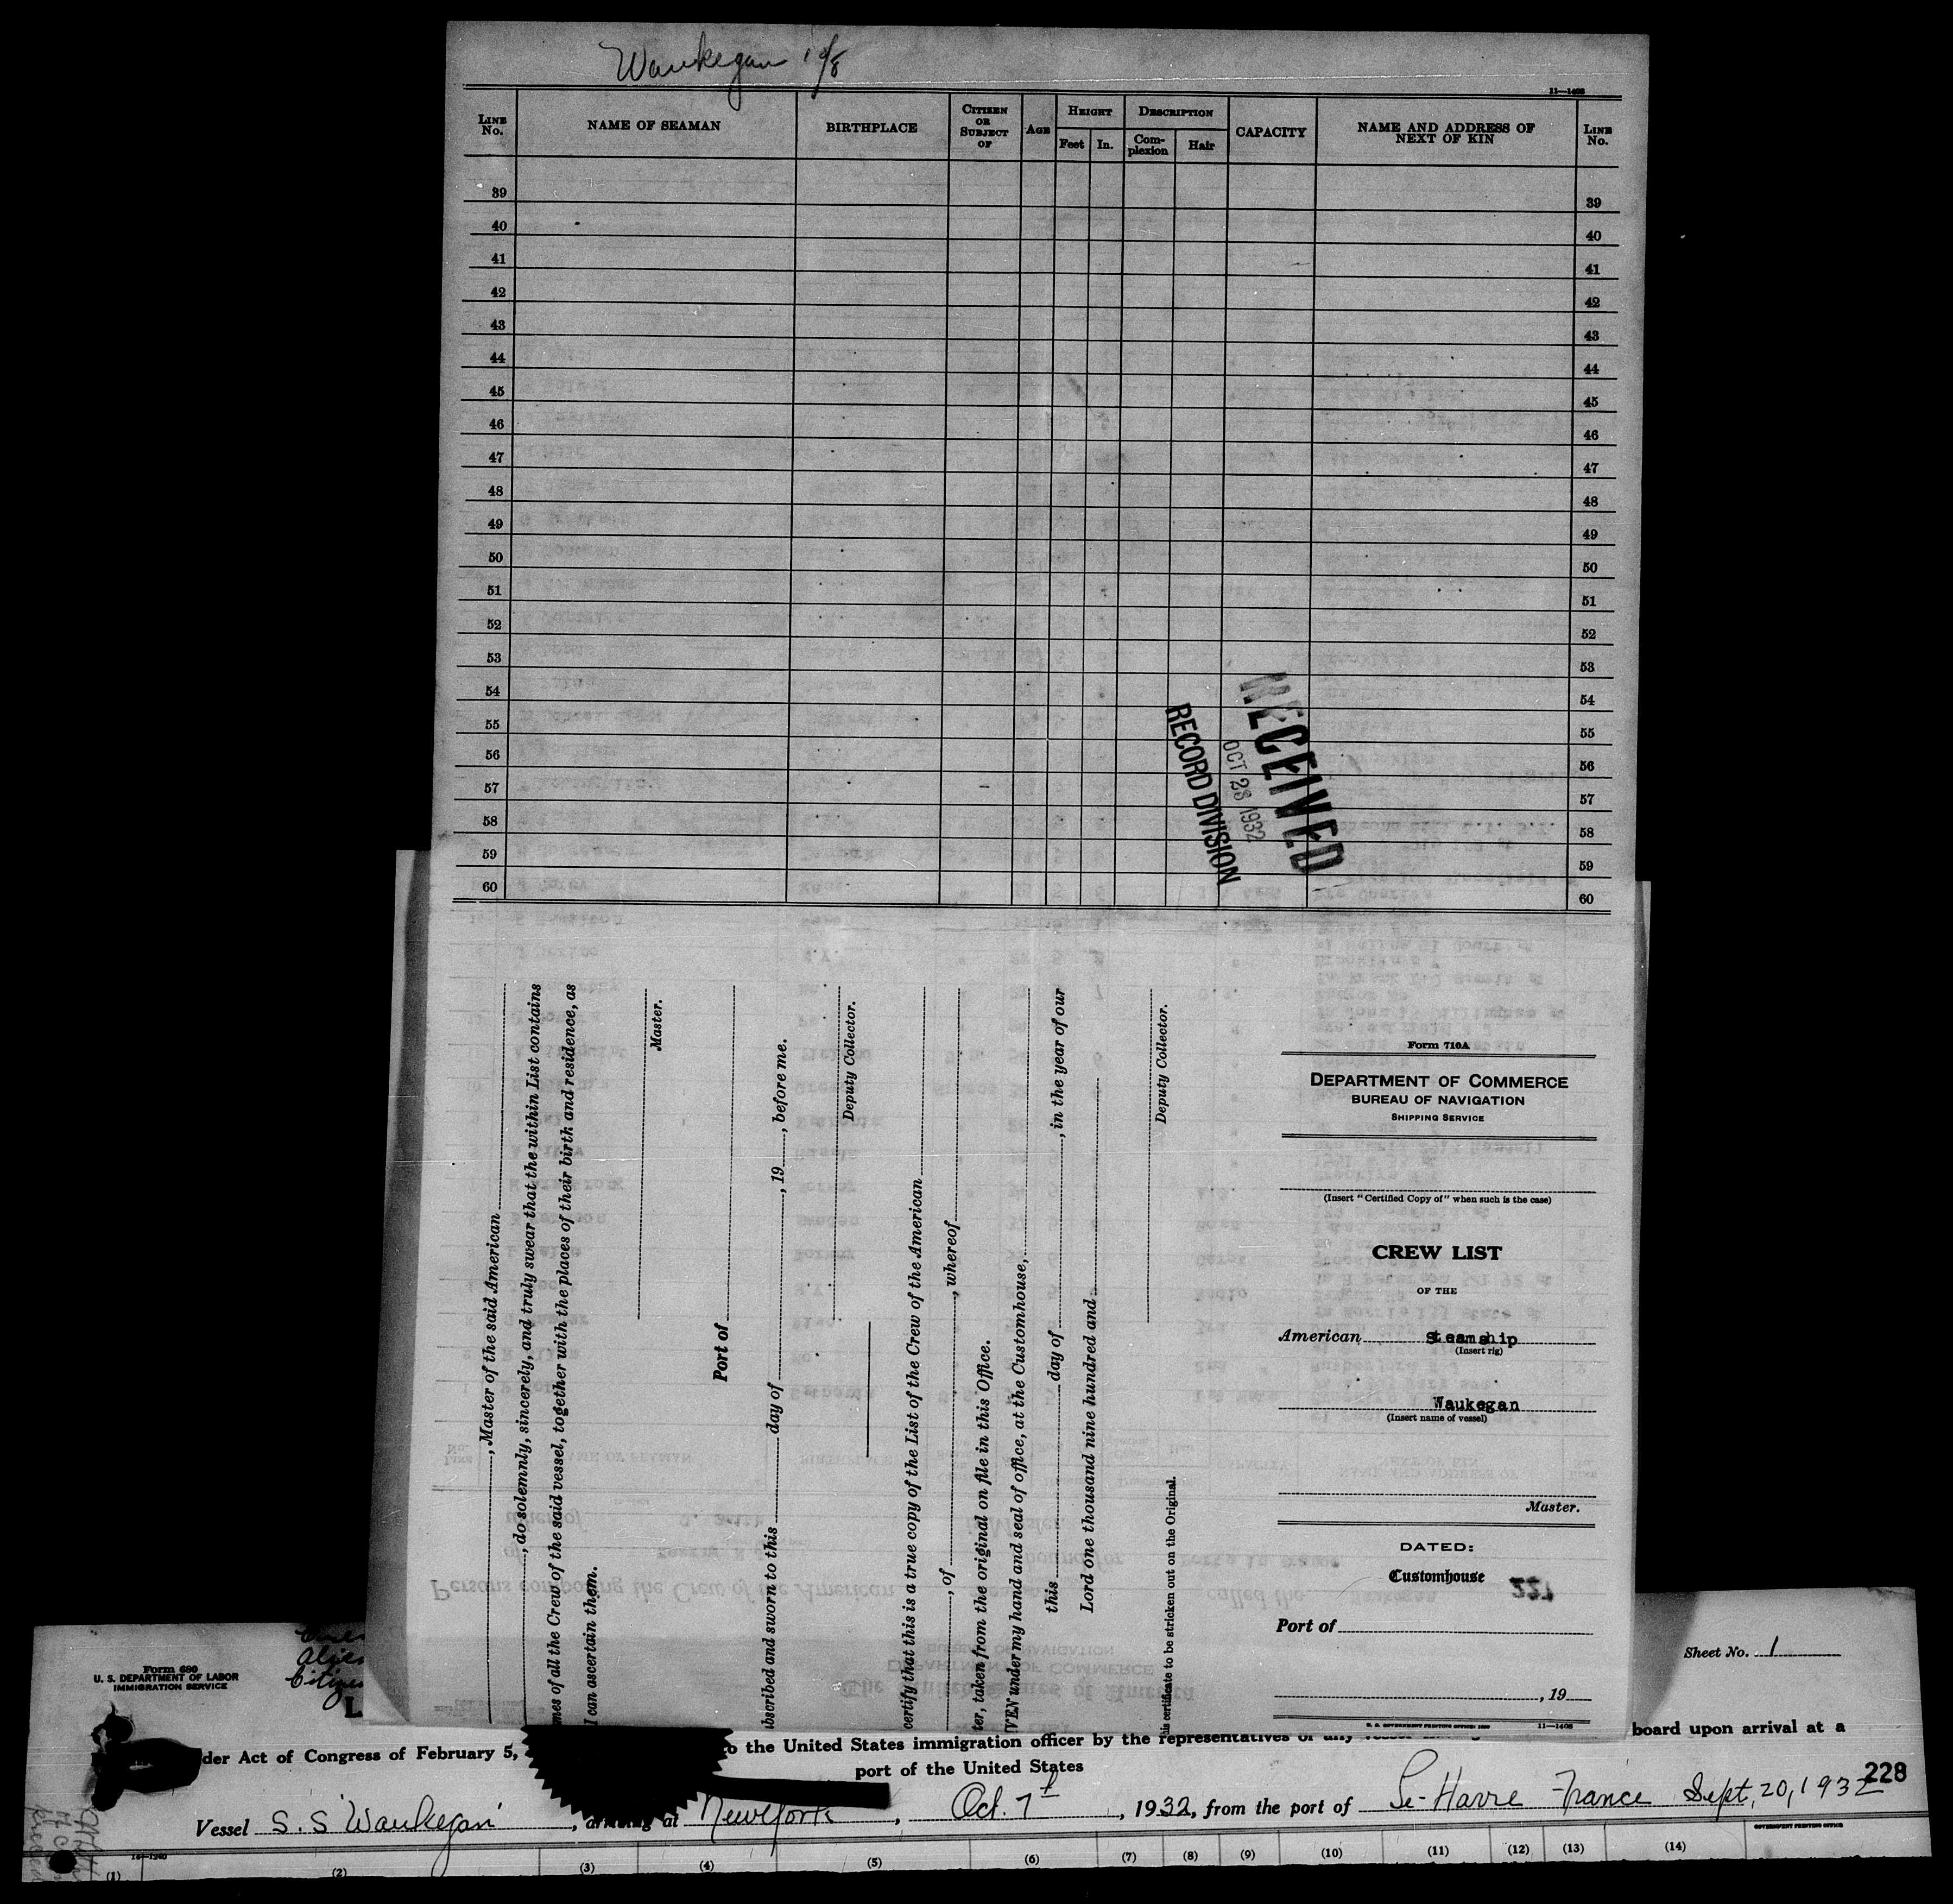 Waukegan 10/8
11—1408
LINE No. NAME OF SEAMAN BIRTHPLACE CITIZEN OR SUBJECT OF AGE HEIGHT Feet In. DESCRIPTION Complexion Hair CAPACITY NAME AND ADDRESS OF NEXT OF KIN LINE No.
39 39
40 40
41 41
42 42
43 43
44 44
45 45
46 46
47 47
48 48
49 49
50 50
51 51
52 52
53 53
54 54
55 55
56 56
57 57
58 58
59 59
60 60
RECEIVED
OCT 28 1932
RECORD DIVISION
, Master of the said American
, do solemnly, sincerely, and truly swear that the within List contains
mes of all the Crew of the said vessel, together with the places of their birth and residence, as
I can ascertain them.
Master.
Port of
bscribed and sworn to this day of , 19 , before me.
Deputy Collector.
certify that this is a true copy of the List of the Crew of the American
, of , whereof
ter, taken from the original on file in this Office.
VEN under my hand and seal of office, at the Customhouse,
this day of , in the year of our
Lord one thousand nine hundred and
Deputy Collector.
his certificate to be stricken out on the Original.
Form 710A
DEPARTMENT OF COMMERCE
BUREAU OF NAVIGATION
SHIPPING SERVICE
(Insert "Certified Copy of" when such is the case)
CREW LIST
OF THE
American Steamship
(Insert rig)
Waukegan
(Insert name of vessel)
Master.
DATED:
Customhouse 227
Port of
, 19
U. S. GOVERNMENT PRINTING OFFICE: 11—1408
Form 680
U. S. DEPARTMENT OF LABOR
IMMIGRATION SERVICE
Sheet No. 1
der Act of Congress of February 5, to the United States immigration officer by the representatives of any vessel board upon arrival at a
port of the United States
228
Vessel S. S Waukegan , arriving at New York , Oct. 7th , 1932, from the port of Le-Havre France Sept, 20, 1932
16—1240 GOVERNMENT PRINTING OFFICE
(1) (2) (3) (4) (5) (6) (7) (8) (9) (10) (11) (12) (13) (14)